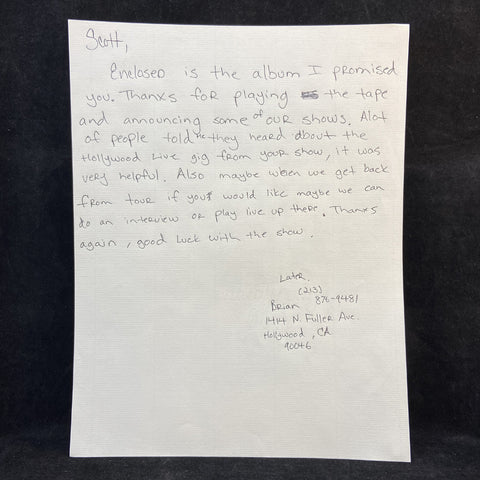 Scott,
Enclosed is the album I promised
you. Thanks for playing the tape
and announcing some of our shows. Alot
of people told me they heard about the
Hollywood Live gig from your show, it was
very helpful. Also maybe when we get back
from tour if you would like maybe we can
do an interview or play live up there. Thanks
again, good luck with the show.
Later.
(213)
Brian 876-9481
1414 N. Fuller Ave.
Hollywood, CA
90046